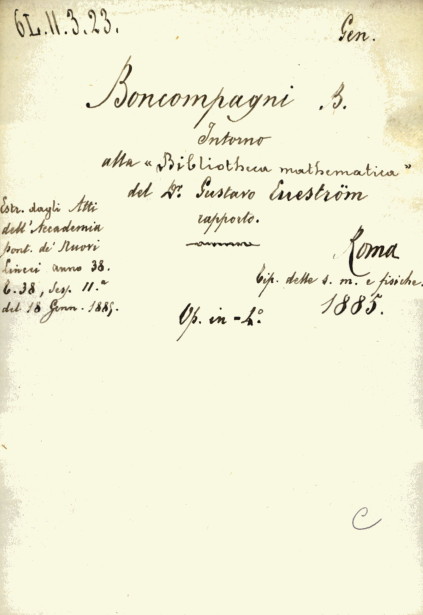 6L.11.3.23.
Gen.
Boncompagni B.
Intorno
alla "Bibliotheca mathematica"
del Dr. Gustavo Eneström
rapporto.
Estr. dagli Atti
dell'Accademia
pont. de' Nuovi
Lincei anno 38.
t. 38, Sess. II.ª
del 18 Genn. 1885.
Roma
Tip. delle s. m. e fisiche.
1885.
Op. in-4.º
C